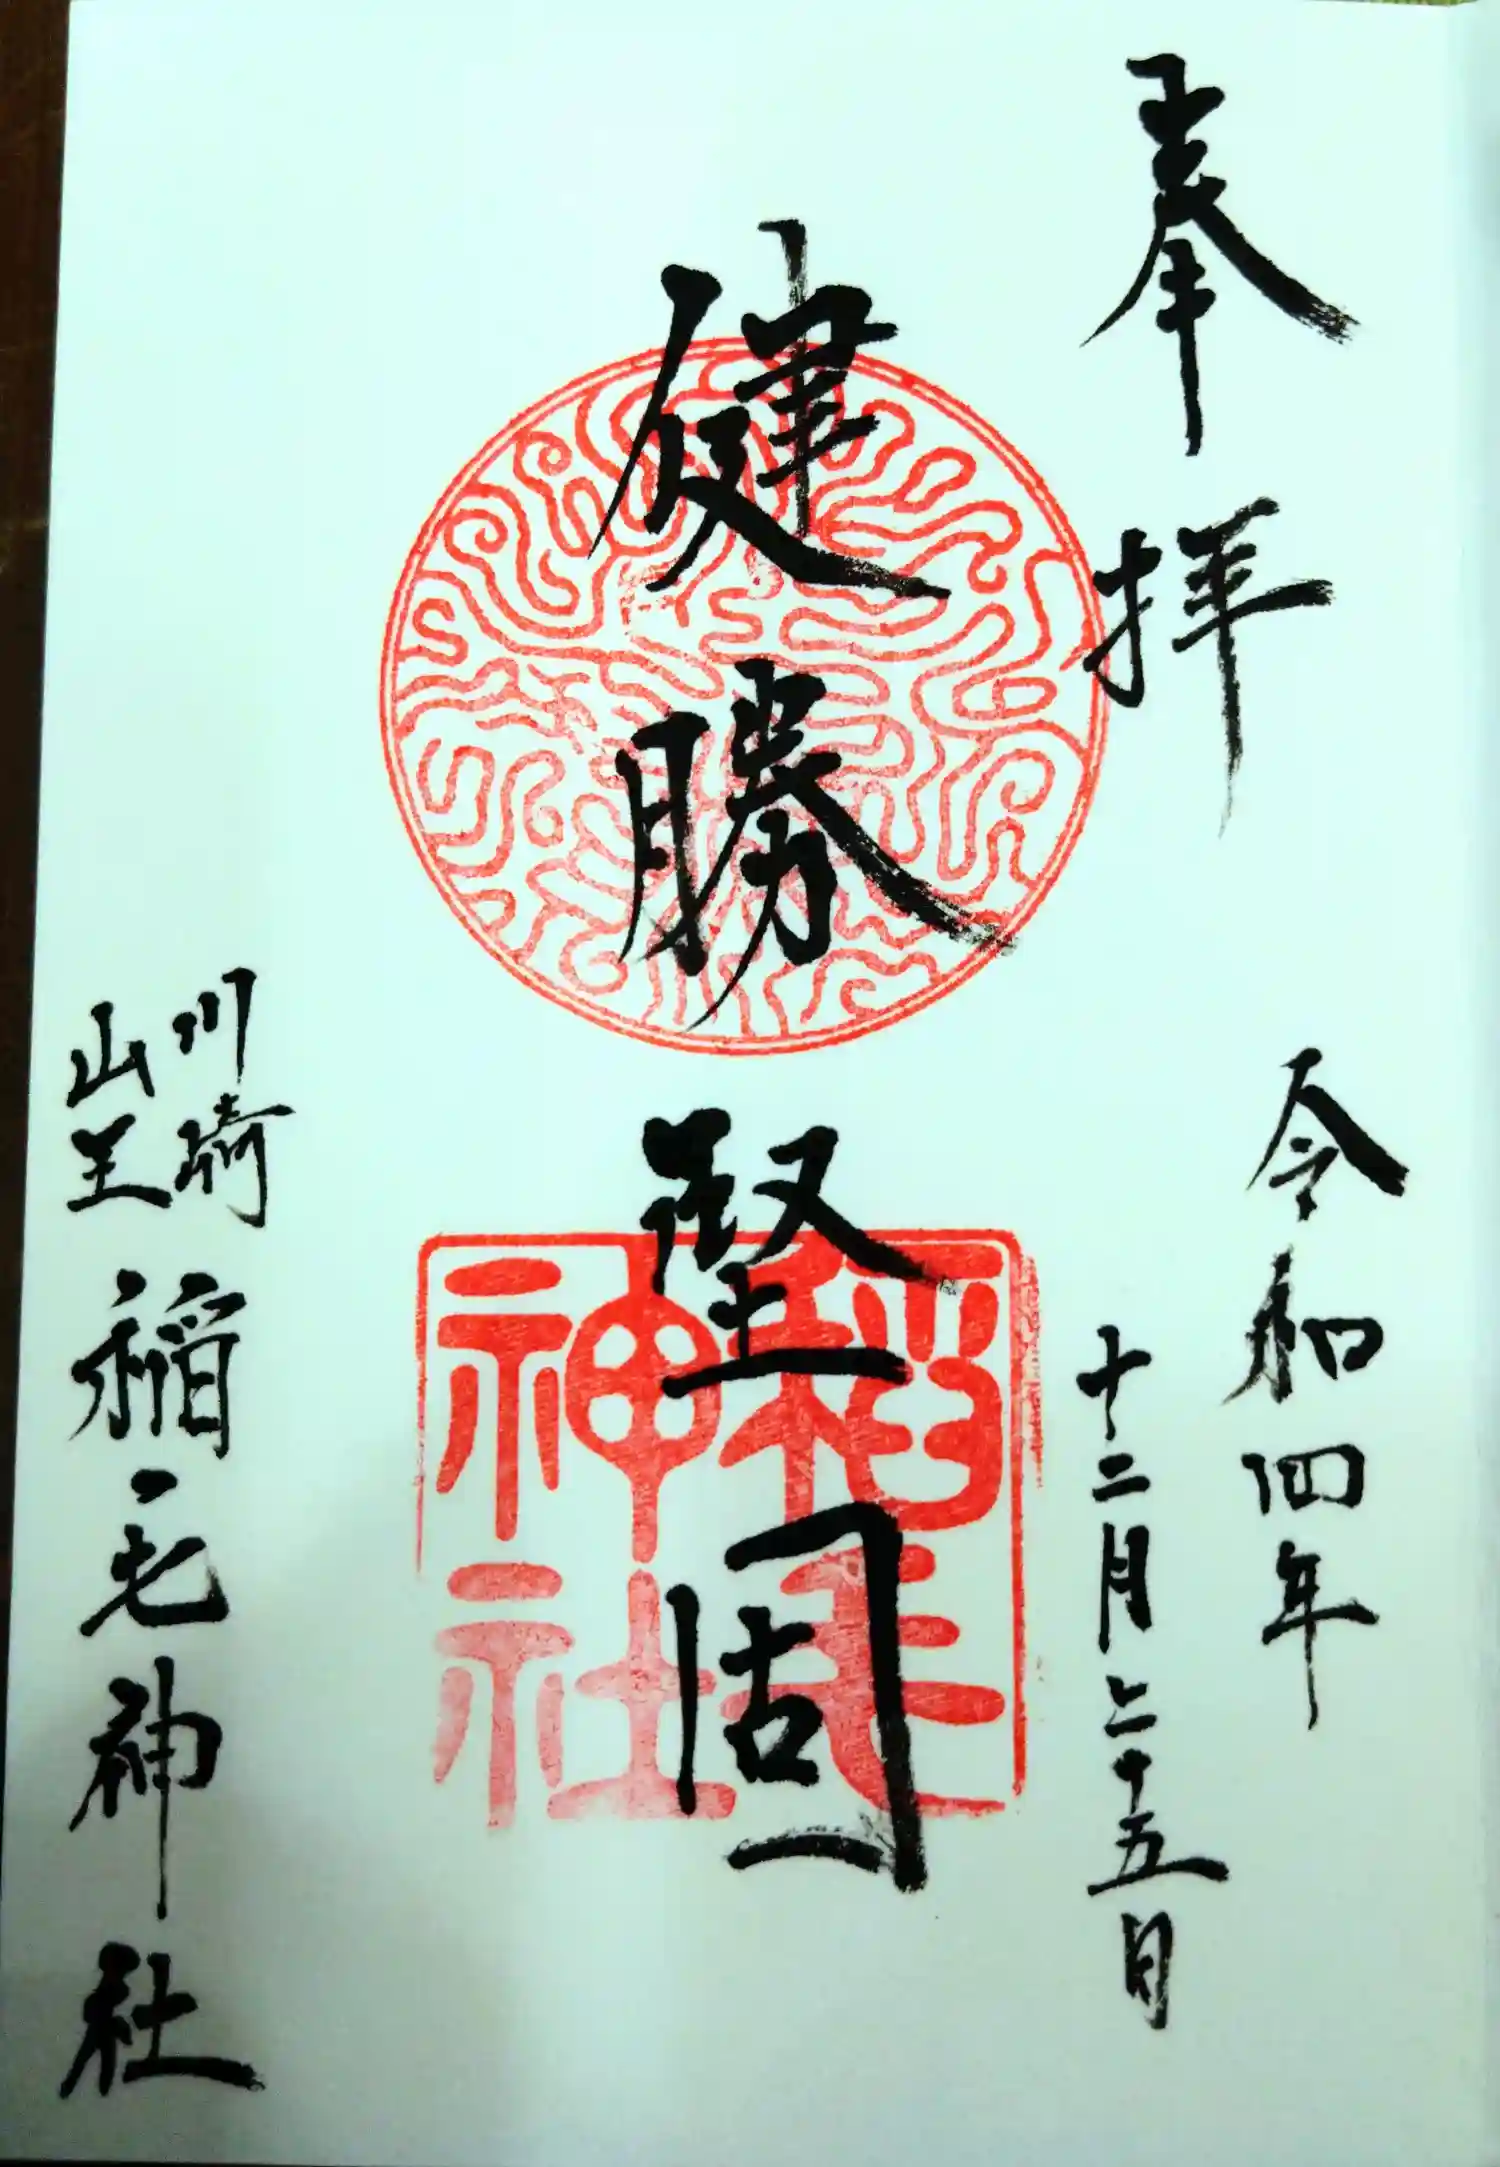 奉拝
令和四年
十二月二十五日
健勝
堅固
稲毛
神社
川崎
山王
稲毛神社